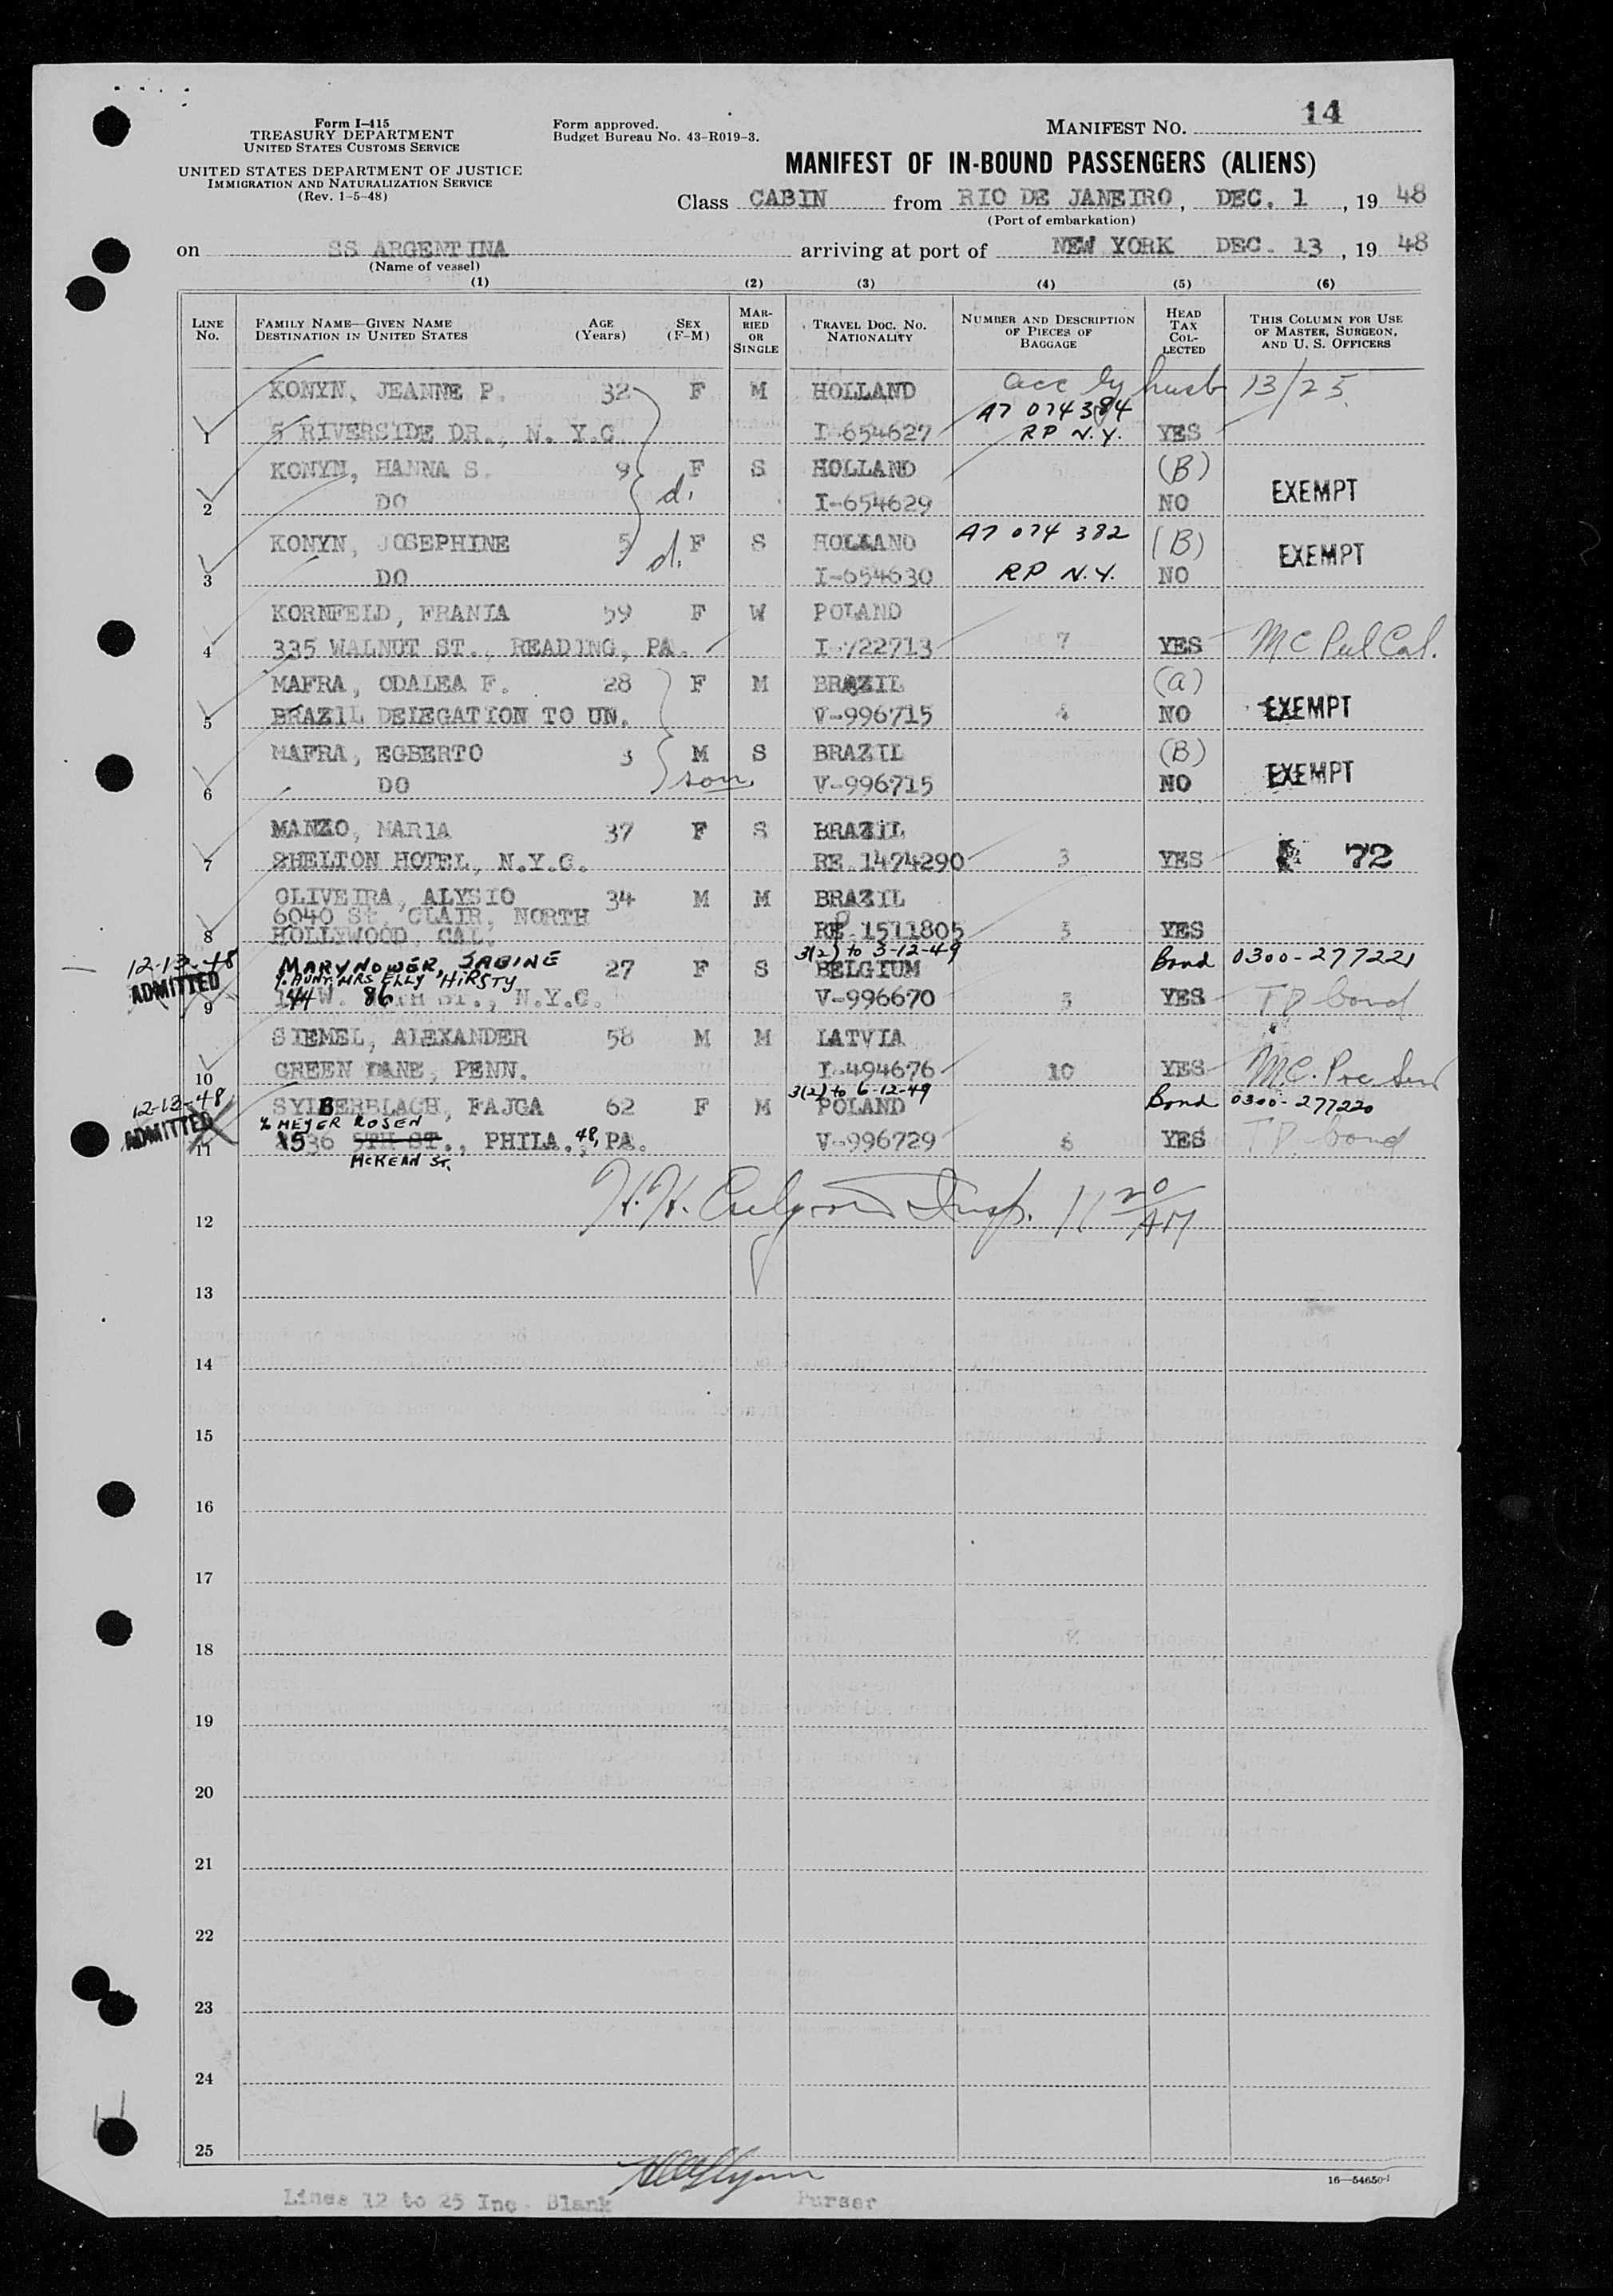 14
Form I-415
TREASURY DEPARTMENT
UNITED STATES CUSTOMS SERVICE
UNITED STATES DEPARTMENT OF JUSTICE
IMMIGRATION AND NATURALIZATION SERVICE
(Rev. 1-5-48)
Form approved.
Budget Bureau No. 43-R019-3.
MANIFEST NO.
MANIFEST OF IN-BOUND PASSENGERS (ALIENS)
Class CABIN from RIO DE JANEIRO, DEC. 1, 19 48
(Port of embarkation)
on SS ARGENTINA arriving at port of NEW YORK DEC. 13, 19 48
(Name of vessel)
(1) (2) (3) (4) (5) (6)
LINE NO. FAMILY NAME—GIVEN NAME DESTINATION IN UNITED STATES AGE (Years) SEX (F-M) MARRIED OR SINGLE TRAVEL DOC. NO. NATIONALITY NUMBER AND DESCRIPTION OF PIECES OF BAGGAGE HEAD TAX COLLECTED THIS COLUMN FOR USE OF MASTER, SURGEON, AND U. S. OFFICERS
KONYN, JEANNE P. 32 F M HOLLAND acc by husb 13/25
A7 074384
1 5 RIVERSIDE DR., N. Y.C. I-654627 RP N.Y. YES
KONYN, HANNA S. 9 F S HOLLAND (B)
d.
2 DO I-654629 NO EXEMPT
KONYN, JOSEPHINE 5 F S HOLLAND A7 074 382 (B)
d.
3 DO I-654630 RP N.Y. NO EXEMPT
KORNFELD, FRANIA 59 F W POLAND
4 335 WALNUT ST., READING, PA. I-722713 7 YES
MAFRA, ODALEA F. 28 F M BRAZIL (a)
5 BRAZIL DELEGATION TO UN. V-996715 4 NO EXEMPT
MAFRA, EGBERTO 3 M S BRAZIL (B)
son
6 DO V-996715 NO EXEMPT
MANZO, MARIA 37 F S BRAZIL
7 SHELTON HOTEL, N.Y.C. RE.1474290 3 YES 72
OLIVEIRA, ALYSIO 34 M M BRAZIL
6040 St. CLAIR, NORTH
8 HOLLYWOOD, CAL. RP 1511805 3 YES
12-13-48 3(2) to 3-12-49
ADMITTED MARYNOWER, SABINE 27 F S BELGIUM Bond 0300-277221
% AUNT: MRS ELLY HIRSTY
9 44 W. 86TH ST., N.Y.C. V-996670 3 YES T D bond
SIEMEL, ALEXANDER 58 M M LATVIA
10 GREEN LANE, PENN. I-494676 10 YES
12-13-48 3(2) to 6-12-49
ADMITTED SYLBERBLACH, FAJGA 62 F M POLAND Bond 0300-277220
% MEYER ROSEN
11 1536 5TH ST., PHILA. 48, PA. V-996729 6 YES T.D. bond
McKEAN ST.
H.H. Insp. 11 20 AM
12
13
14
15
16
17
18
19
20
21
22
23
24
25
16—54650-1
Lines 12 to 25 Inc. Blank Purser